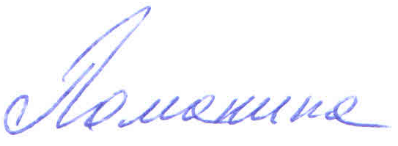 Ломакина